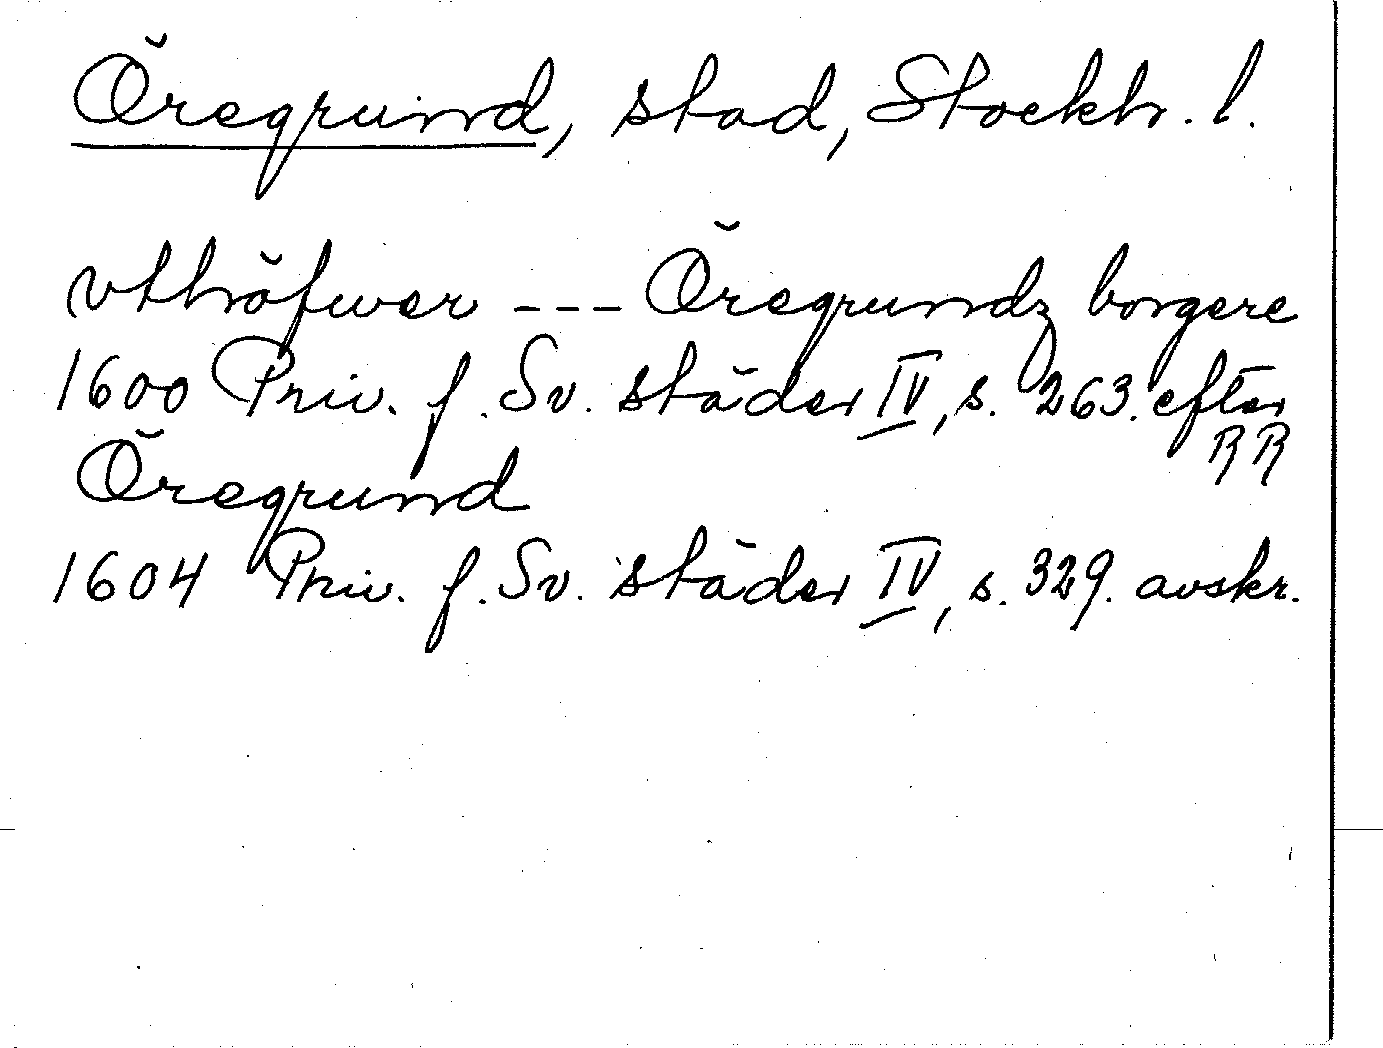 Öregrund, stad, Stockh. l.
vthröfwer --- Öregrundz borgere
1600 Priv. f. Sv. städer IV, s. 263. efter
RR
Öregrund
1604 Priv. f. Sv. städer IV, s. 329. avskr.